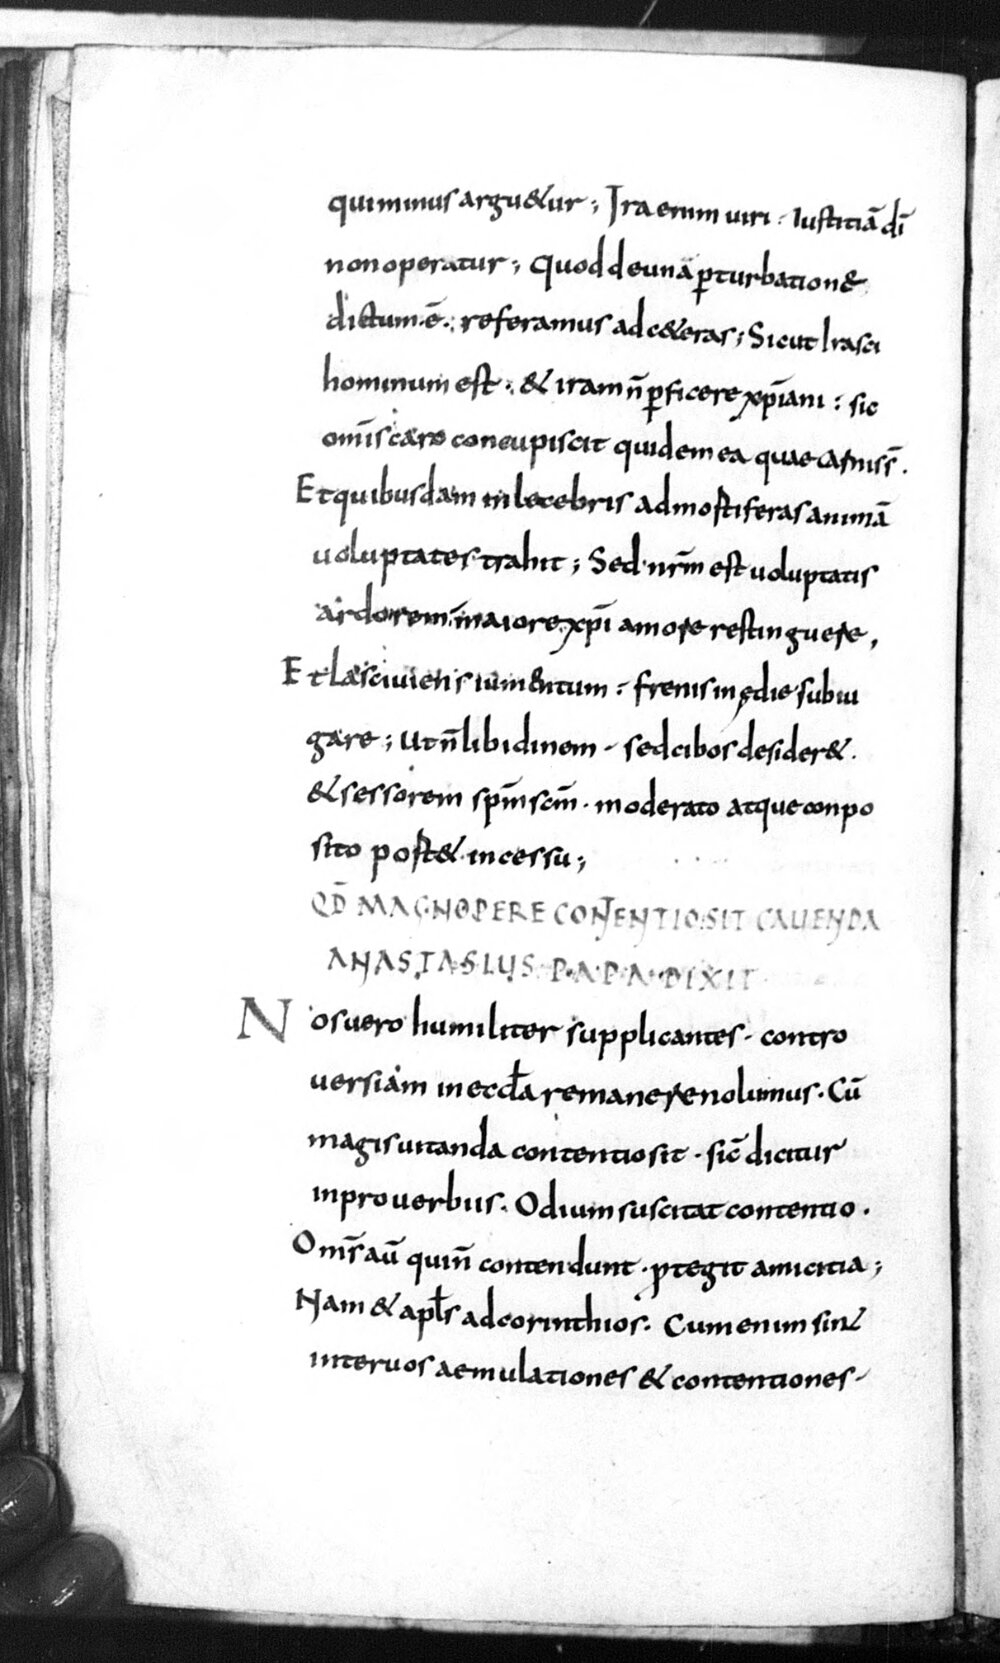 qui minus argu&ur; Ira enim uiri · iustitiā dī
non operatur; Quod de una ꝑturbation&
dictum ē. referamus ad c&eras; Sicut Irasci
hominum est · & iram n̄ ꝑficere xp̄iani : sic
om̄is caro concupiscit quidem ea quae carnis s̄.
Et quibusdam inlecebris ad mortiferas animā
uoluptates trahit; Sed nr̄m est uoluptatis
ardorem maiore xp̄i amore restinguere,
Et lasciuiens ium&ntum : frenis inędie subiu
gare; Ut n̄ libidinem - sed cibos desider& .
& sessorem sp̄m sc̄m · moderato atque conpo
sito post& incessu;
QD̄ MAGNOPERE CONTENTIO SIT CAUENDA
ANASTASIUS PAPA DIXIT
Nos uero humiliter supplicantes · contro
uersiam in eccl̄a remanere nolumus · Cū
magis uitanda contentio sit · sic̄ dicitur
in prouerbiis. Odium suscitat contentio.
Om̄s aū qui n̄ contendunt · ꝓtegit amicitia;
Nam & apl̄s ad corinthios. Cum enim sint
inter uos aemulationes & contentiones -